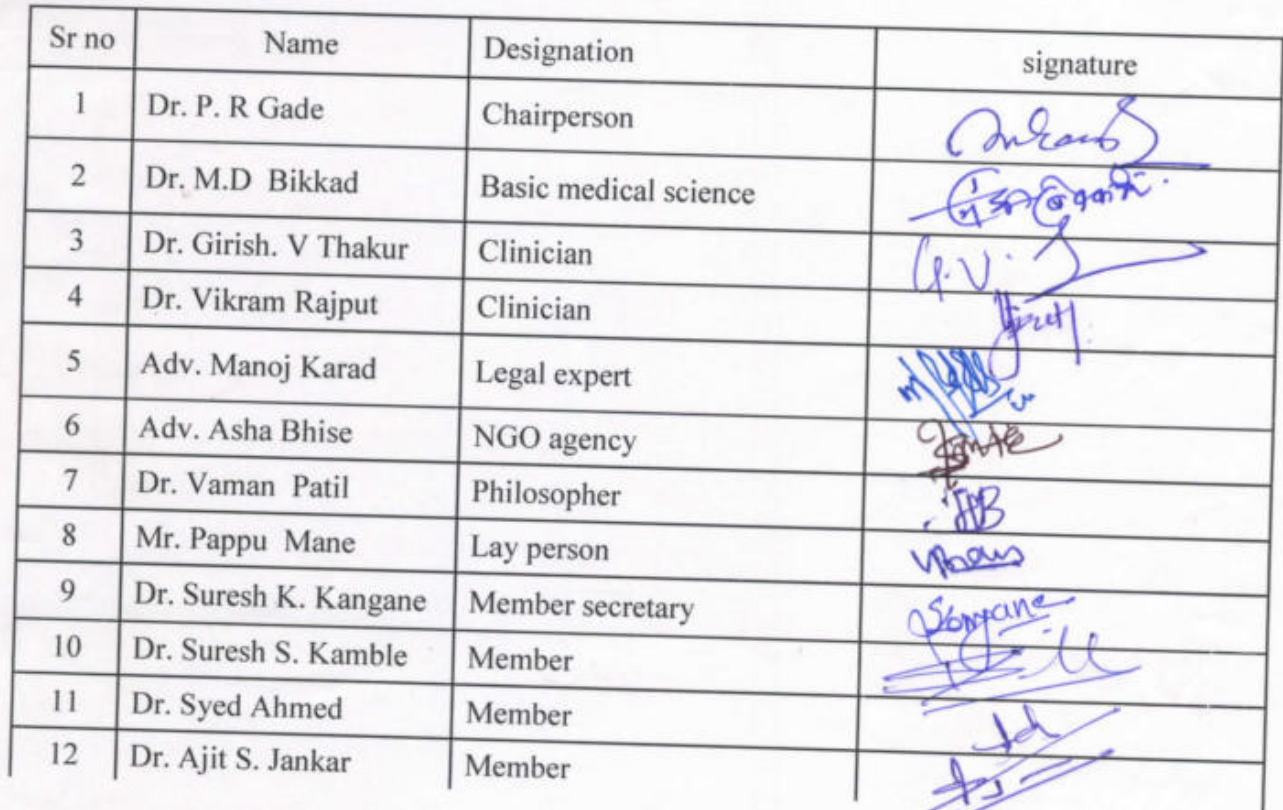 Sr no Name Designation signature
1 Dr. P. R Gade Chairperson
2 Dr. M.D Bikkad Basic medical science
3 Dr. Girish. V Thakur Clinician G.V.
4 Dr. Vikram Rajput Clinician
5 Adv. Manoj Karad Legal expert
6 Adv. Asha Bhise NGO agency
7 Dr. Vaman Patil Philosopher
8 Mr. Pappu Mane Lay person
9 Dr. Suresh K. Kangane Member secretary
10 Dr. Suresh S. Kamble Member
11 Dr. Syed Ahmed Member
12 Dr. Ajit S. Jankar Member